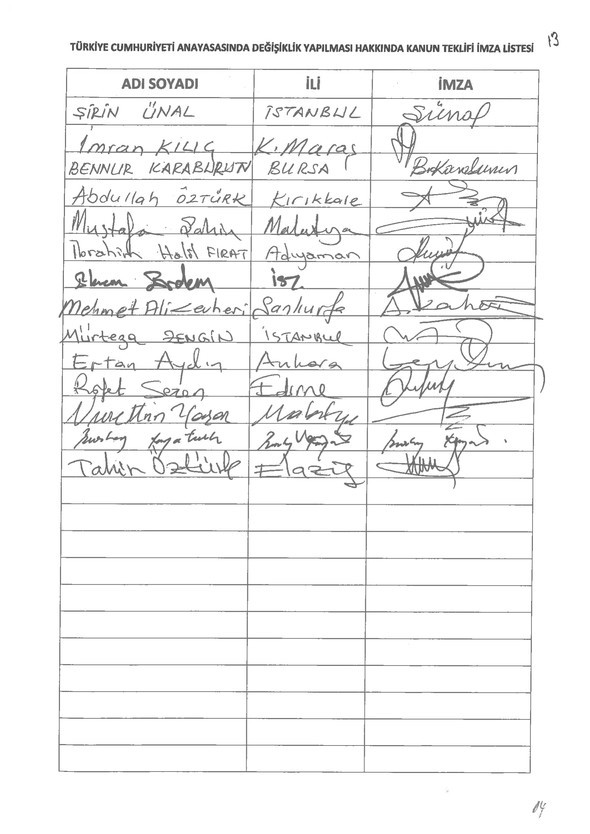 13
TÜRKİYE CUMHURİYETİ ANAYASASINDA DEĞİŞİKLİK YAPILMASI HAKKINDA KANUN TEKLİFİ İMZA LİSTESİ
ADI SOYADI İLİ İMZA
ŞİRİN ÜNAL İSTANBUL Şünal
İmran KILIÇ K.Maraş
BENNUR KARABURUN BURSA B.Karaburun
Abdullah ÖZTÜRK Kırıkkale
Mustafa Şahin Malatya
İbrahim Halil FIRAT Adıyaman
Ekrem Erdem İst.
Mehmet Ali Cevheri Şanlıurfa
Mürteza ZENGİN İSTANBUL
Ertan Aydın Ankara
Rafet Sezen Edirne
Nurettin Yaşar Malatya
Burhan
Tahir Öztürk Elazığ
14